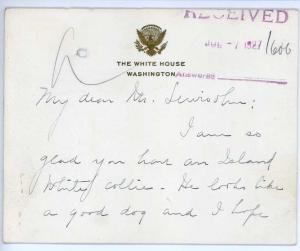 RECEIVED
JUL - 7 1927
1606
THE WHITE HOUSE
WASHINGTON
Answered
My dear Mr.
I am so
glad you have an Island
White collie. He looks like
a good dog and I hope